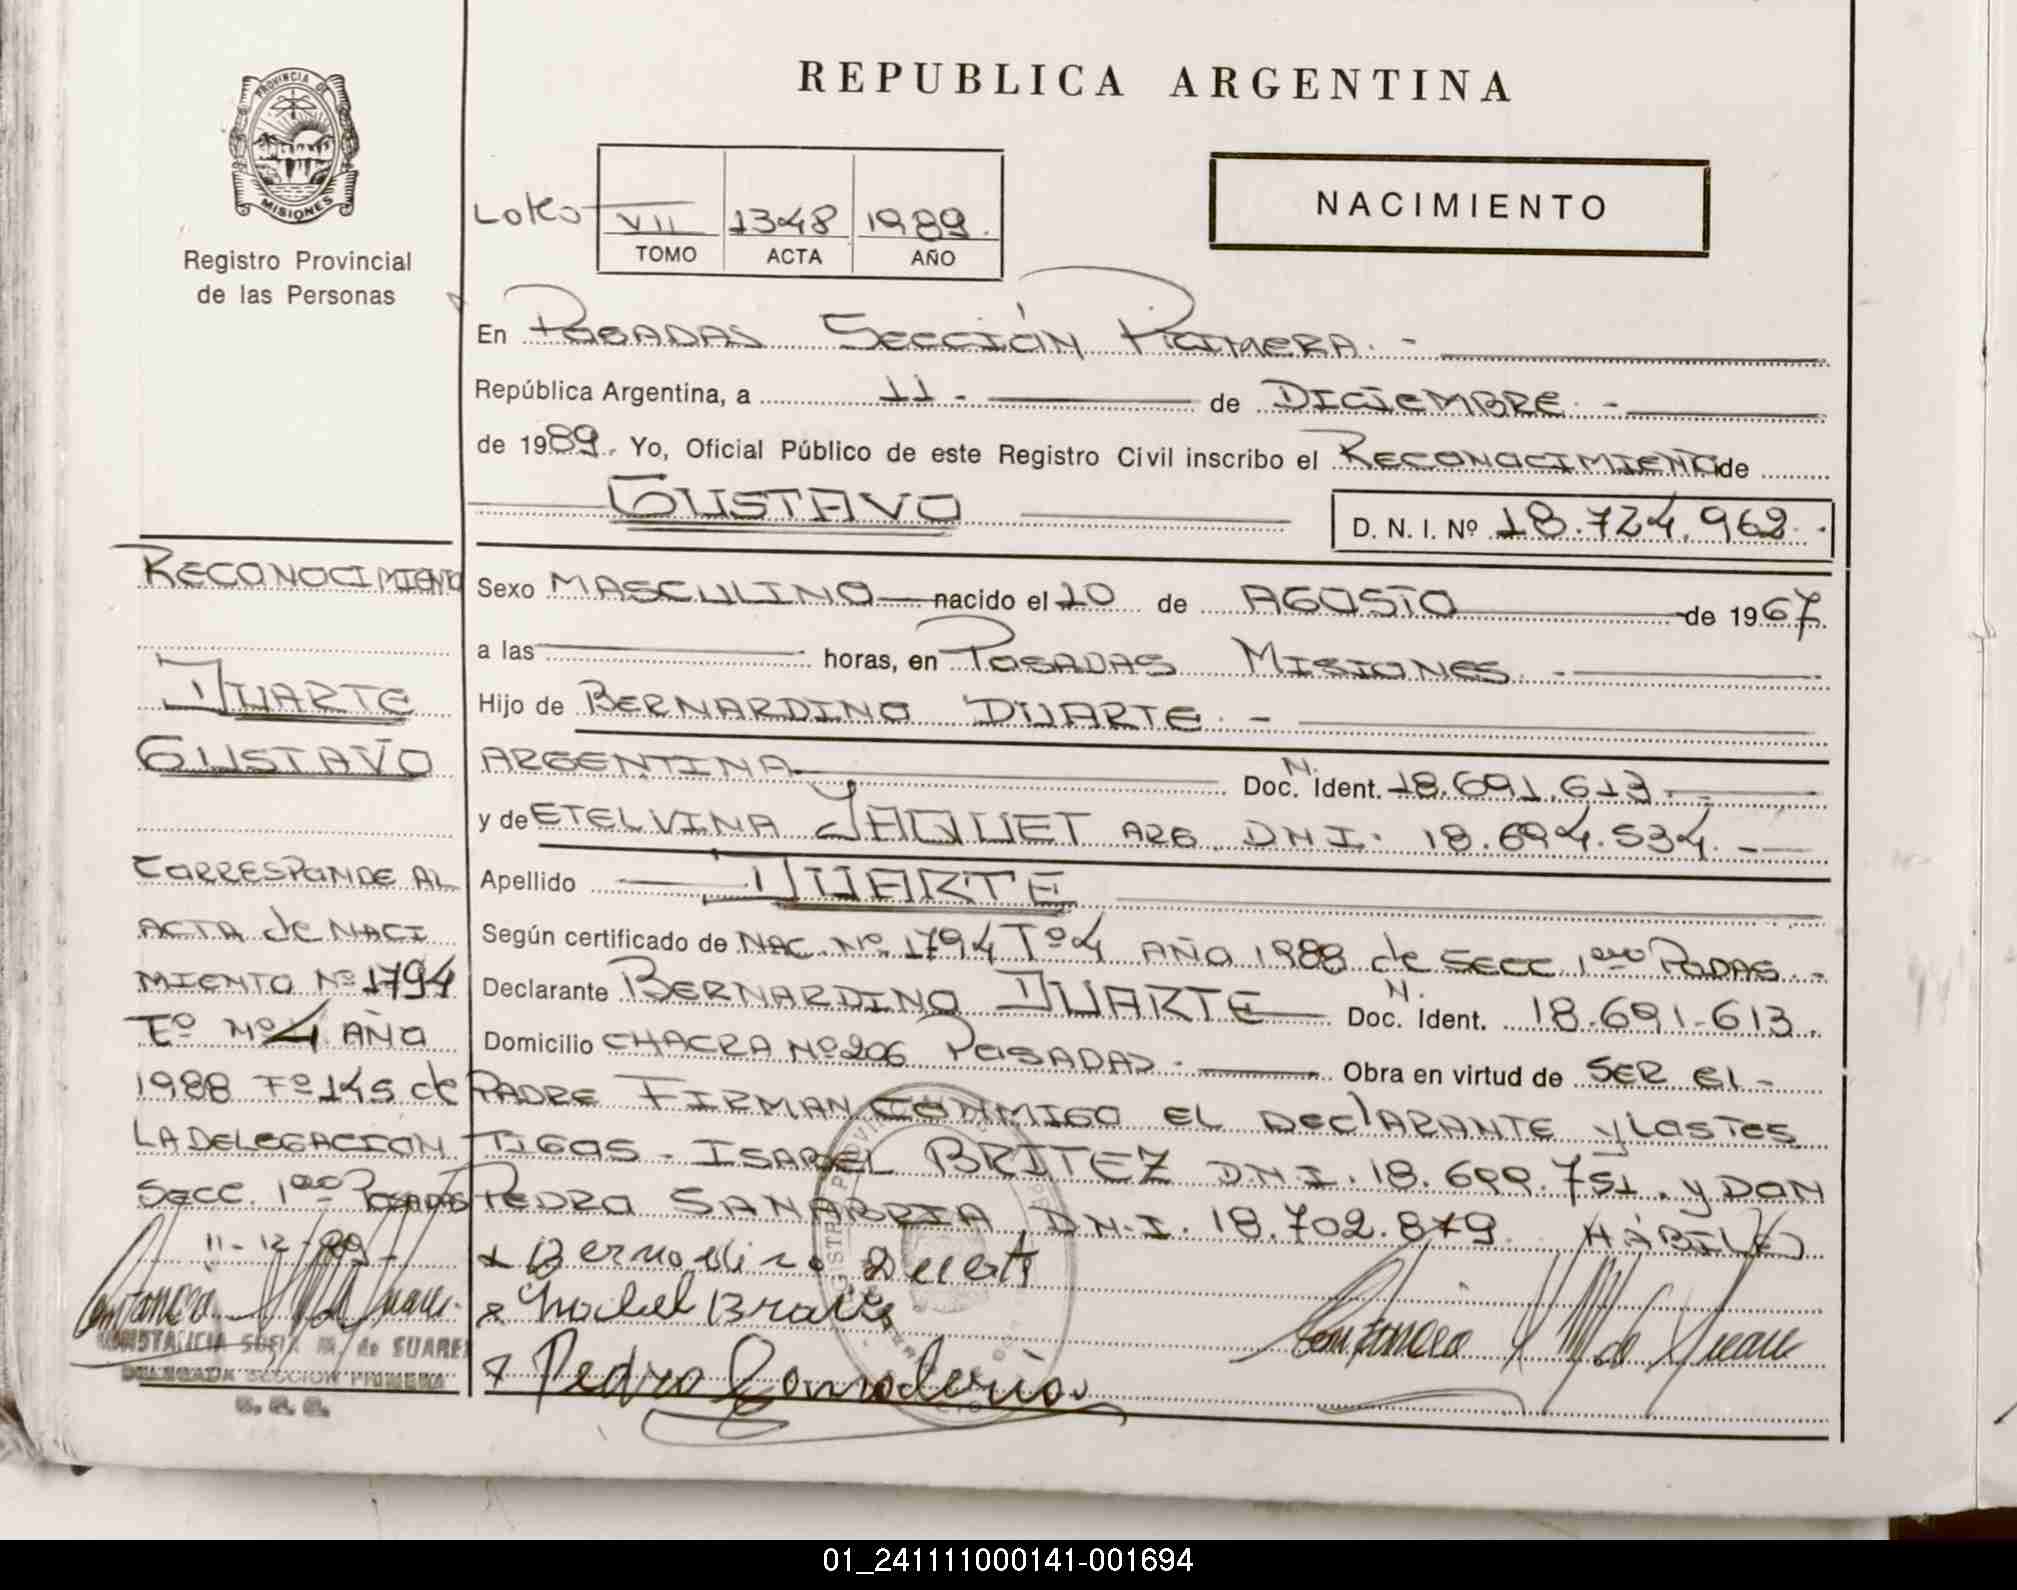 REPUBLICA ARGENTINA
PROVINCIA DE
MISIONES
Registro Provincial
de las Personas
VII 1348 1989.
TOMO ACTA AÑO
NACIMIENTO
En POSADAS SECCIÓN PRIMERA. -
República Argentina, a 11 - de DICIEMBRE. -
de 1989. Yo, Oficial Público de este Registro Civil inscribo el RECONOCIMIENTO de
GUSTAVO
D. N. I. Nº 18.724.962.
Sexo MASCULINO nacido el 20 de AGOSTO de 1967
a las horas, en POSADAS MISIONES. -
Hijo de BERNARDINO DUARTE. -
ARGENTINA Doc. N. Ident. 18.691.613.
y de ETELVINA JAQUET ARG. DNI. 18.694.534. -
Apellido DUARTE
Según certificado de NAC. Nº 1794 Tº 4 AÑO 1988 de SECC. 1era PODAS. -
Declarante BERNARDINO DUARTE Doc. N. Ident. 18.691.613.
Domicilio CHACRA Nº 206 POSADAS. - Obra en virtud de SER EL -
PADRE FIRMAN CONMIGO EL DECLARANTE y LOS TES
TIGOS - ISABEL BRITEZ D.N.I. 18.699.751. y DON
PEDRO SANABRIA DN.I. 18.702.879. HÁBILES
RECONOCIMIENTO
DUARTE
GUSTAVO
CORRESPONDE AL
ACTA de NACI
MIENTO Nº 1794
Tº Nº 4 AÑO
1988 Fº 145 de
LA DELEGACION
SECC. 1era POSADAS
11-12-89 -
CONSTANCIA SOFIA M. de SUAREZ
DELEGADA SECCION PRIMERA
01_241111000141-001694